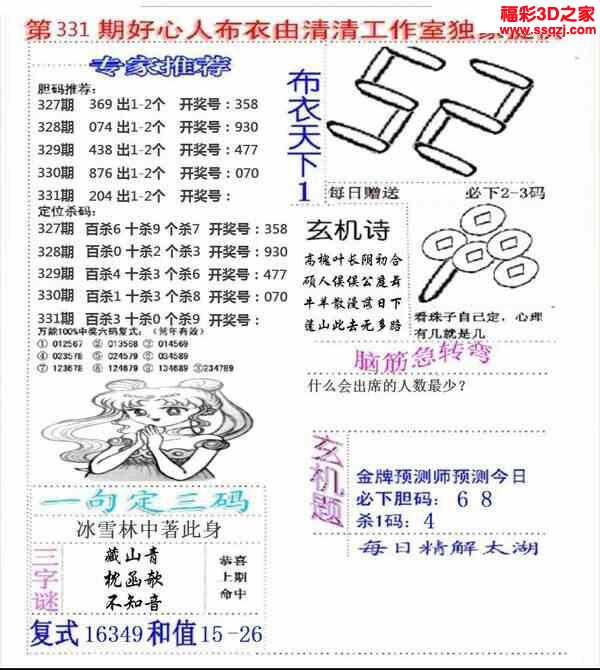 福彩3D之家
www.ssqzj.com
第331期好心人布衣由清清工作室独家
专家推荐
胆码推荐:
327期 369 出1-2个 开奖号:358
328期 074 出1-2个 开奖号:930
329期 438 出1-2个 开奖号:477
330期 876 出1-2个 开奖号:070
331期 204 出1-2个 开奖号:
定位杀码:
327期 百杀6 十杀9 个杀7 开奖号:358
328期 百杀0 十杀2 个杀3 开奖号:930
329期 百杀4 十杀3 个杀6 开奖号:477
330期 百杀1 十杀3 个杀8 开奖号:070
331期 百杀3 十杀0 个杀9 开奖号:
万能100%中奖六码复式:(常年有效)
①012567 ②013568 ③014569
④023578 ⑤024579 ⑥034589
⑦123678 ⑧124679 ⑨134689 ⑩234789
布衣天下1
52
每日赠送 必下2-3码
玄机诗
高槐叶长阴初合
硕人俣俣公庭舞
牛羊散漫落日下
蓬山此去无多路
看珠子自己定,心理
有几就是几
脑筋急转弯
什么会出席的人数最少?
玄机题
金牌预测师预测今日
必下胆码: 6 8
杀1码: 4
每日精解太湖
一句定三码
冰雪林中著此身
三字谜
藏山青
枕函歌
不知音
恭喜
上期
命中
复式 16349 和值 15-26